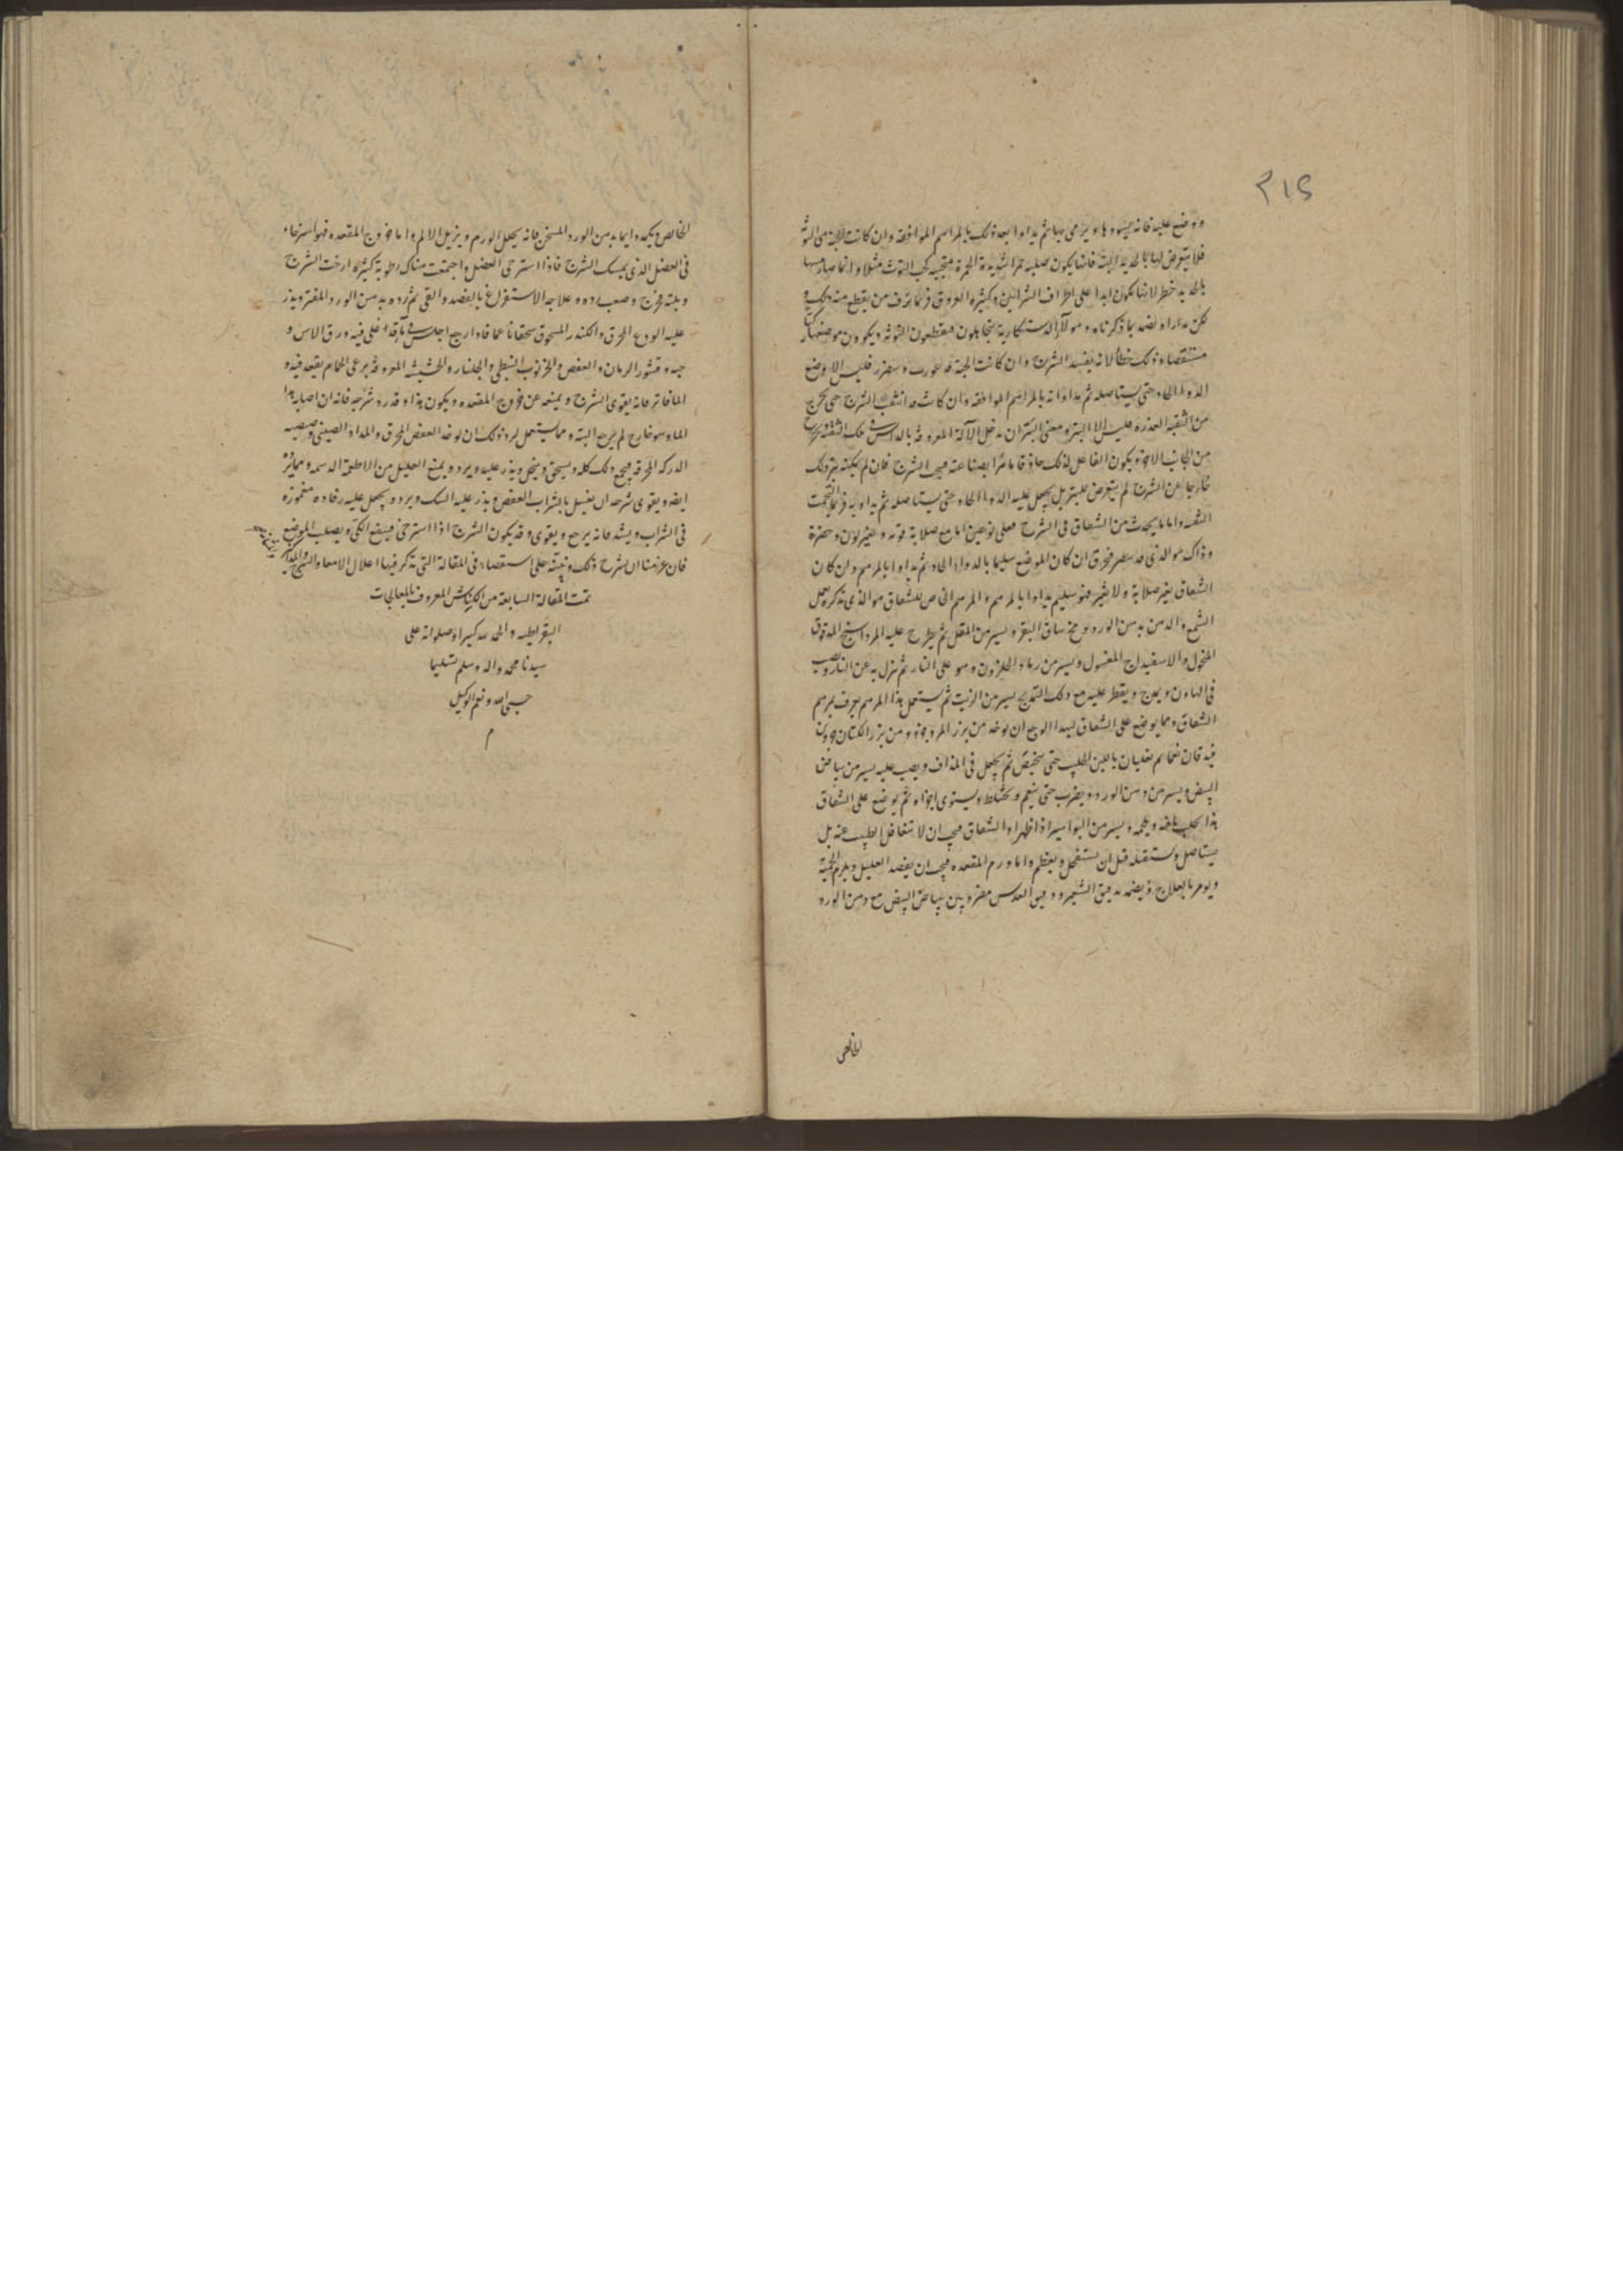 ٢١٤
ووضع عليه فانه يسودها ويرمى بها ثم يداوا بعد ذلك بالمراهم الموافقه وان كانت لابثة هى التوثه
فلا يتعرض لها بالحديد البته فانها يكون صلبه حمرا شديدة الحمرة متحببه كحب التوث مثلا وانما صار مسها
بالحديد خطر لانها تكون ابدا على اطراف الشرائين وكثيره العروق فربما نزف من يقطع منه ذلك و
لكن يداوا ويضمد بما ذكرناه وهولآء الدستكارية يتجاهلون فيقطعون التوثه ويكوون موضعها
مستقصا وذلك خطأ لانه يفسد الشرج وان كانت الجثة قد غورت فليس الا وضع
الدوا الحاد حتى يستاصله ثم مداواته بالمراهم الموافقه وان كانت قد انثقب الشرج حتى يخرج
من الثقبه العذرة فليس الا البتر ومعنى البتر ان يدخل الآلة المعروفه
من الجانب الاخر ويكون الفاعل لذلك حاذقا ماهرا بصناعته الشرج فان لم يمكنه بتر ذلك
خارجا عن الشرج لم يتعرض للبتر بل يجعل عليه الدوا الحاد حتى يستاصله ثم يداويه فربما التحمت
الثقبه واما ما يحدث من الشقاق فى الشرج فعلى نوعين اما مع صلابة قويه وتغير لون وخضرة
وذاك هو الذى ان كان الموضع سليما بالدواء الحاد ثم يداوا بالمرهم وان كان
الشقاق بغير صلابة ولا تغير فهو سليم يداوا بالمرهم والمرهم الخاص للشقاق هو الذى نذكره تحل
الشمع والدهن بدهن الورد ومخ ساق البقر ويسير من المقل ثم يطرح عليه المرداسنج المدقوق
المنخول والاسفيداج المغسول ويسير من رماد الحلزون وهو على النار ثم ينزل به عن النار ويصب
فى الهاون ويمزج ويقطر عليه مع ذلك يسير من الزيت ثم يستعمل هذا المرهم يعرف بمرهم
الشقاق ومما يوضع على الشقاق ليهدا الوجع ان يوخذ من بزر المرو جزو ومن بزر الكتان جزوين
يغليان باللبن الحليب حتى ثم يجعل فى ويصب عليه يسير من بياض
البيض ويسير من دهن الورد ويضرب حتى ينعم ويختلط ويستوى اجزاه ثم يوضع على الشقاق
هذا ويسير من البواسير اذا ظهر اوالشقاق فيجب ان لا تتغافل الطبيب عنه بل
يستاصل قبل ان يستفحل ويعظم واما ورم المقعده فيجب ان يفصد العليل ويلزم الحمية
ويومر بالعلاج ويضمد بدقيق الشعير ودقيق العدس مضروبين ببياض البيض مع دهن الورد
الخالص
الخالص ويكمد دايما بدهن الورد المسخن فانه يحلل الورم ويزيل الالم واما خروج المقعده فهو استرخاء
فى العضل الذى يمسك الشرج فاذا استرخى العضل واجتمعت هناك رطوبة كثيره ارخت الشرج
وبلته فخرج وصعب رده وعلاجه الاستفراغ بالفصد والقى ثم رده بدهن الورد المفتر ويذر
عليه الودع المحرق والكندر المسحوق سحقا ناعما فاذا رجع اجلس فى ماء قد اغلى فيه ورق الاس و
حبه وقشور الرمان والعفص والخرنوب النبطى والجلنار والحشيشه المعروفه برعى الحمام يقعد فيه و
الما فاتر فانه يقوى الشرج ويمنعه عن خروج المقعده ويكون هذا وقد رد شرجه فانه ان اصابه هذا
الما وهو خارج لم يرجع البته ومما يستعمل لرد ذلك ان يوخذ العفص المحرق والمداد الصينى
المحرقه فيجمع ذلك كله ويسحق وينخل ويذر عليه ويرد ويمنع العليل من الاطعمة الدسمه
ايضه ويقوى شرجه ان يغسل بالشراب العفص ويذر عليه السك ويرد ويجعل عليه رفاده مغموزه
فى الشراب ويشد فانه يرجع ويقوى وقد يكون الشرج اذا استرخى فينفع الكى ويصلب الموضع
فان عزمنا ان نشرح ذلك ونبينه على استقصاء فى المقالة التى نذكر فيها اعلال الامعا والشرج
تمت المقالة السابعة من الكناش المعروف بالمعالجات
البقراطيه والحمد لله كثيرا وصلواته على
سيدنا محمد واله وسلم تسليما
حسبى الله ونعم الوكيل
م